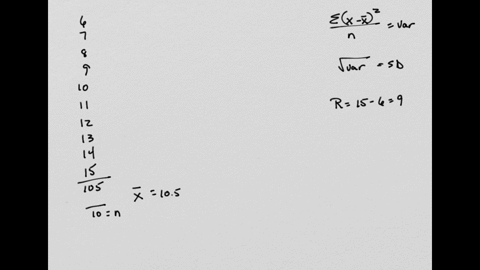 6
7
8
9
10
11
12
13
14
15
105
10 = n
x̄ = 10.5
Σ(x-x̄)² / n = var
√var = SD
R = 15 - 6 = 9